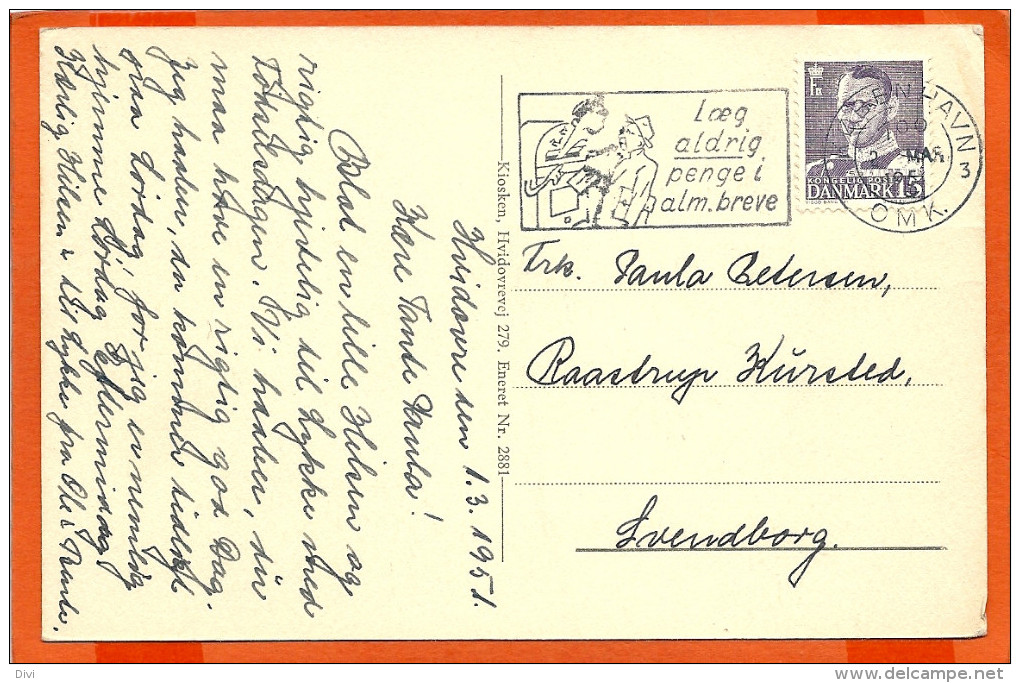 Hvidovre den 1.3.1951.
Kære Tante Paula!
Blot en lille Hilsen og
rigtig hjertelig til Lykke med
Føhelsdagen. Vi haaber, du
maa have en rigtig god Dag.
Jeg haaber, du kommer
paa Lørdag, for jeg er nemlig
hjemme Lørdag Eftermiddag
Kærlig Hilsen & til Lykke fra Ole &
Kiosken, Hvidovrevej 279. Eneret Nr. 2881
Læg
aldrig
penge i
alm. breve
KØBENHAVN
2. MAR
195
OMK.
3
KONGELIG POST
DANMARK 15
Frk. Paula Petersen,
Raastrup Kirsted,
Svendborg.
Divi
www.delcampe.net